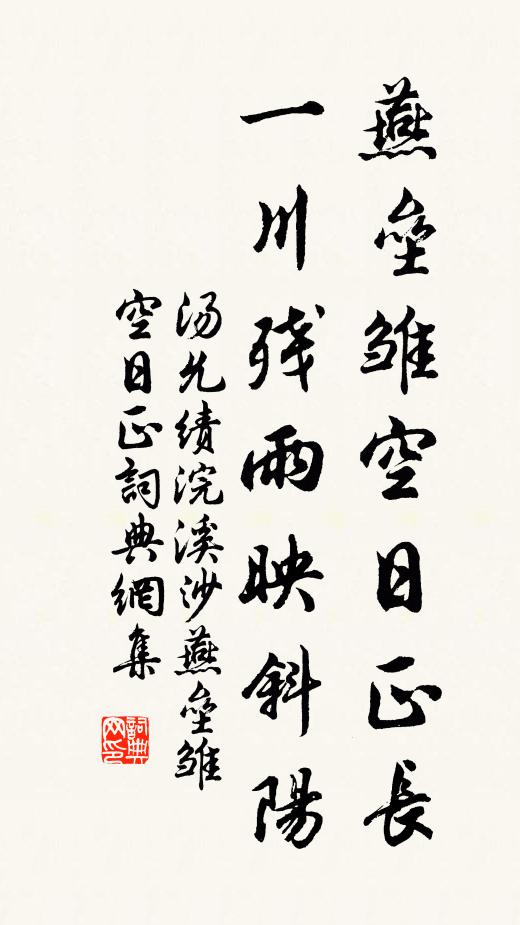 燕垒雛空日正長
一川残雨映斜陽
汤允績浣溪沙燕垒雛
空日正詞典網集
詞典
网印